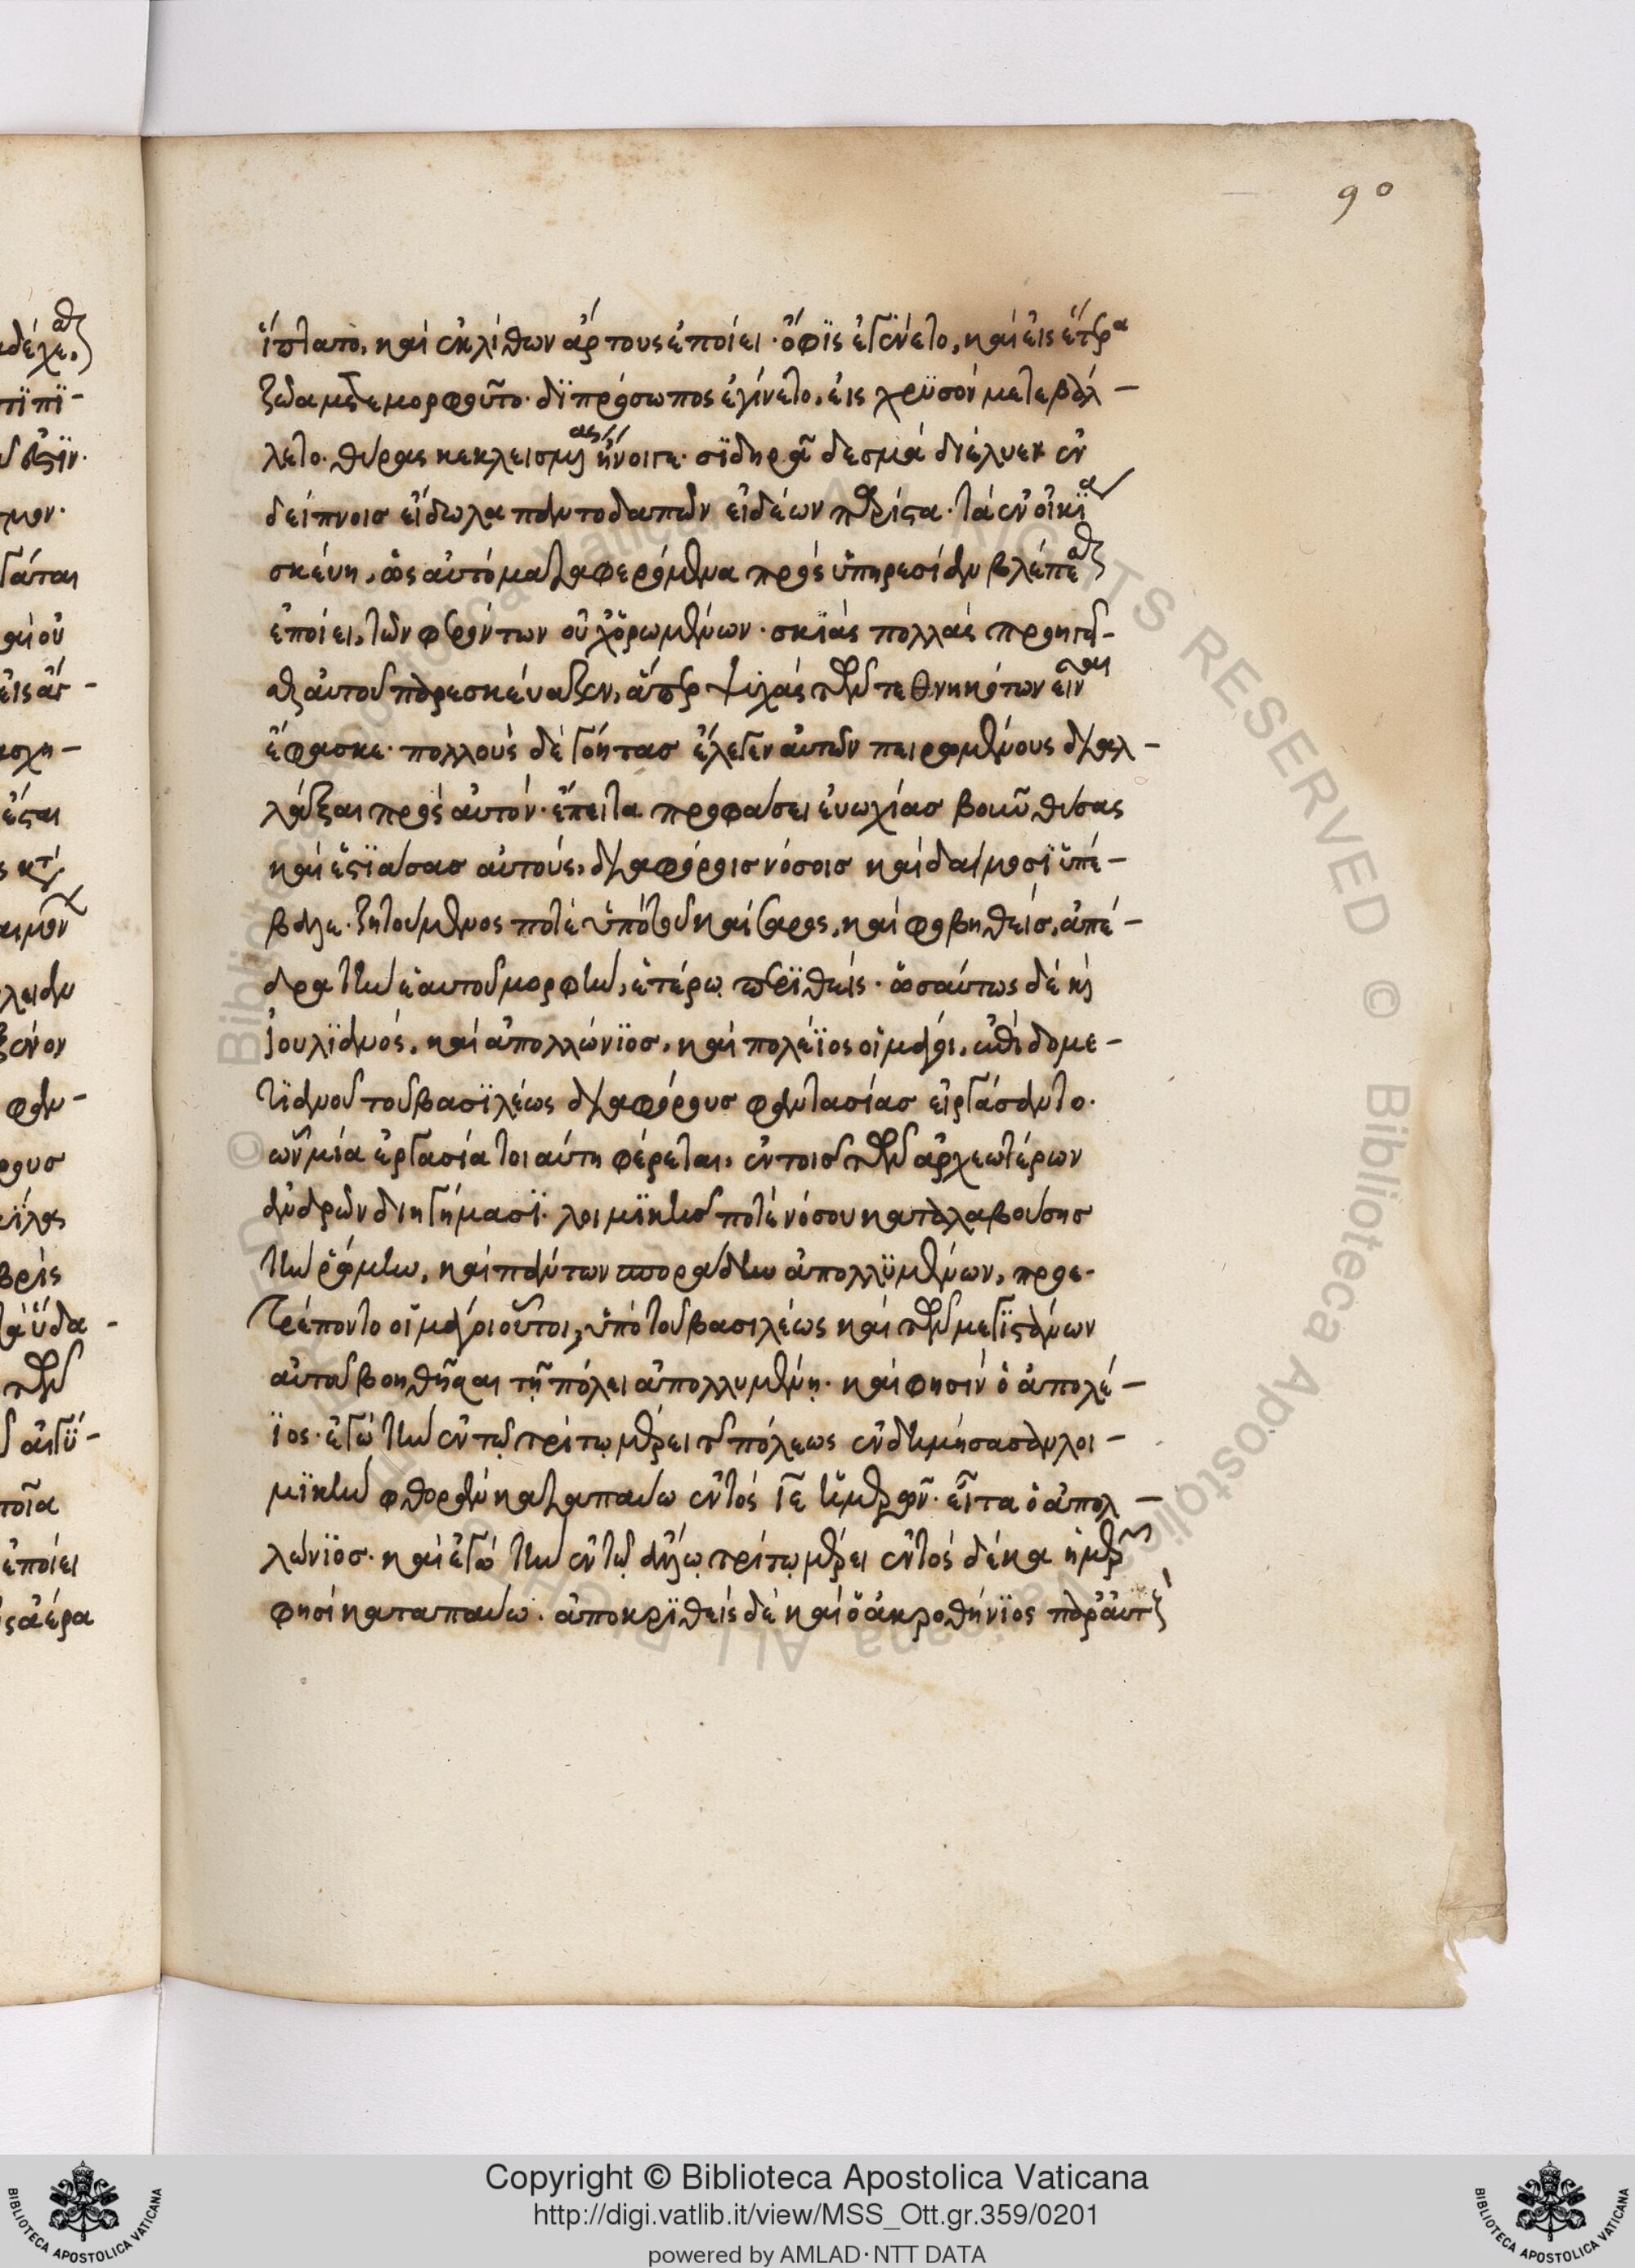 90
ἵπτατο, καὶ ἐκ λίθων ἄρτους ἐποίει · ὄφϊς ἐγένετο, καὶ εἰς ἕτερα
ζῶα μετεμορφοῦτο · δϊπρόσωπος ἐγίνετο, εἰς χρϋσὸν μετεβάλ –
λετο · θύρας κεκλεισμένας ἤνοιγε · σϊδηρᾶ δεσμὰ διέλυεν ἐν
δείπνοισ εἴδωλα παντοδαπῶν εἰδέων παρίστα · τὰ ἐν οἰκία
σκεύη, ὡς αὐτόματα φερόμενα πρὸς ὑπηρεσίαν βλέπεσθαι
ἐποίει, τῶν φερόντων οὐχ ὁρωμένων · σκϊὰς πολλὰς προηγεῖ –
σθαι αὐτοῦ παρεσκεύαζεν, ἅπερ ψυχὰς τῶν τεθνηκότων εἶναι
ἔφασκε · πολλοὺς δὲ γόητασ ἐλέγεν αὐτῶν πειρωμένους διαλ –
λάξαι πρὸς αὐτόν · ἔπειτα προφάσει εὐωχίασ βοῦν θύσας
καὶ ἑστϊάσασ αὐτούς, διαφόροισ νόσοισ καὶ δαίμοσϊ ὑπέ –
βαλε · ζητούμενος ποτὲ ὑπὸ τοῦ καίσαρος, καὶ φοβηθεὶσ, ἀπέ –
δρα τὴν ἑαυτοῦ μορφὴν, ἑτέρω περϊθείς · ὡσαύτως δὲ καὶ
ἰουλϊανός, καὶ ἀπολλώνϊοσ, καὶ πολέϊος οἱ μάγοι, ἐπὶ δομε –
τϊανοῦ τοῦ βασϊλέως διαφόρουσ φαντασίασ εἰργάσαντο ·
ὧν μία ἐργασία τοιαύτη φέρεται, ἐν τοισ τῶν ἀρχεωτέρων
ἀνδρῶν διηγήμασϊ · λοιμϊκῆσ ποτὲ νόσου καταλαβούσησ
τὴν ῥώμην, καὶ πάντων σποράδην ἀπολλϋμένων, προε –
τρέποντο οἱ μάγοι οὗτοι, ὑπὸ τοῦ βασιλέως καὶ τῶν μεγϊστάνων
αὐτοῦ βοηθῆσαι τῇ πόλει ἀπολλυμένῃ · καὶ φησὶν ὁ ἀπολέ –
ϊος · ἐγὼ τὴν ἐν τῷ τρίτῳ μέρει τῆς πόλεως ἐνδημήσασαν λοι –
μϊκὴν φθορὰν καταπαύω ἐντὸς ιε ἡμερῶν · εἶτα ὁ ἀπολ –
λώνϊοσ · καὶ ἐγὼ τὴν ἐν τῷ ἄλλῳ τρίτῳ μέρει ἐντὸς δέκα ἡμερῶν
φησὶ καταπαύω · ἀποκρϊθεὶς δὲ καὶ ὁ ἀκροθήνϊος παρ᾽ αὐτοῖς
Copyright © Biblioteca Apostolica Vaticana
http://digi.vatlib.it/view/MSS_Ott.gr.359/0201
powered by AMLAD·NTT DATA